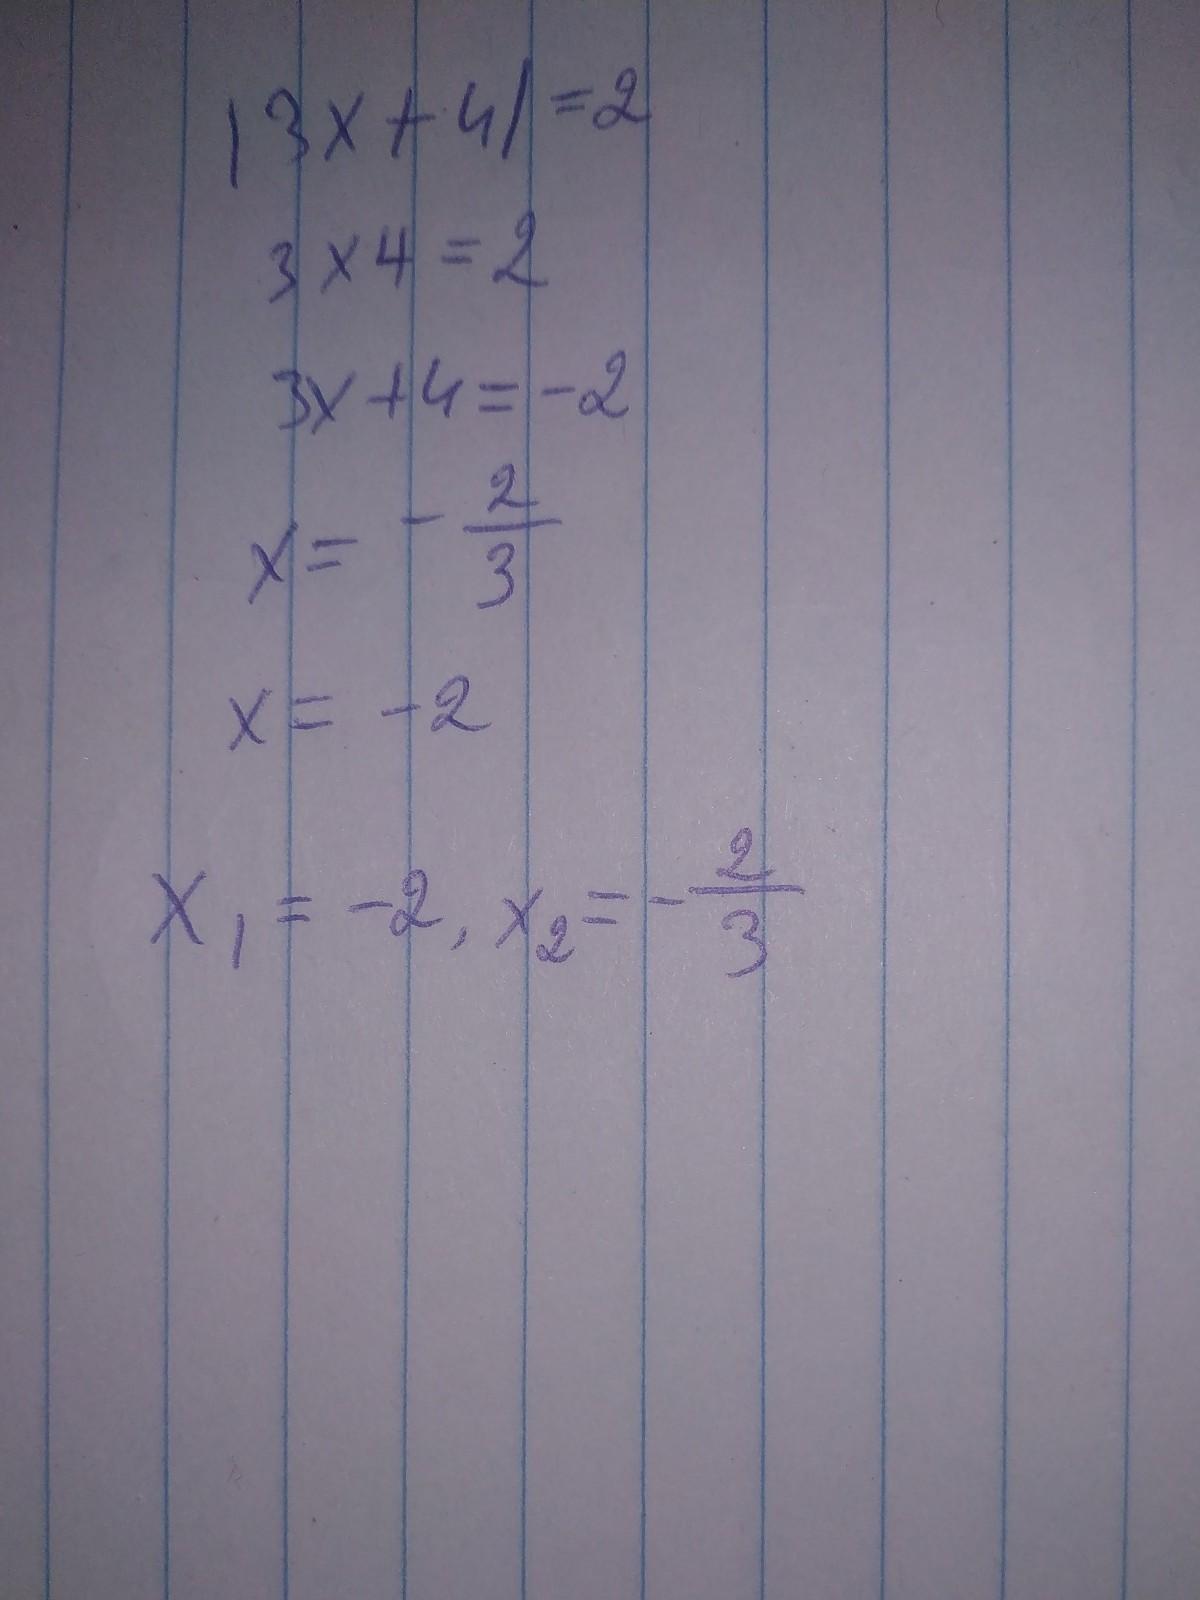 |3x+4|=2
3x4=2
3x+4=-2
x= -2/3
x= -2
x₁ = -2, x₂=-2/3